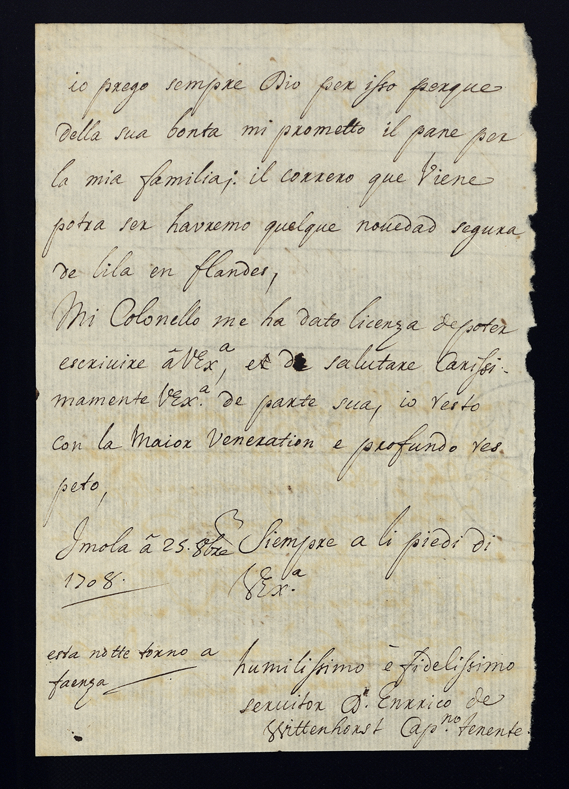 io prego sempre Dio per isso perque
della sua bonta mi prometto il pane per
la mia familia; il correro que Viene
potra ser havremo quelque nouedad segura
de lila en flandes,
Mi Colonello me ha dato licenza de poter
escriuire â VExª, et de salutare Carissi-
mamente VEx.ª de parte sua, io resto
con la Maior Veneration e profundo res
peto,
Jmola â 25. 8bre Siempre a li piedi di
1708. VEx.ª
esta notte torno a
faenza
humilissimo è fidelissimo
seruitor D. Enrrico de
Wittenhorst Cap.no tenente.